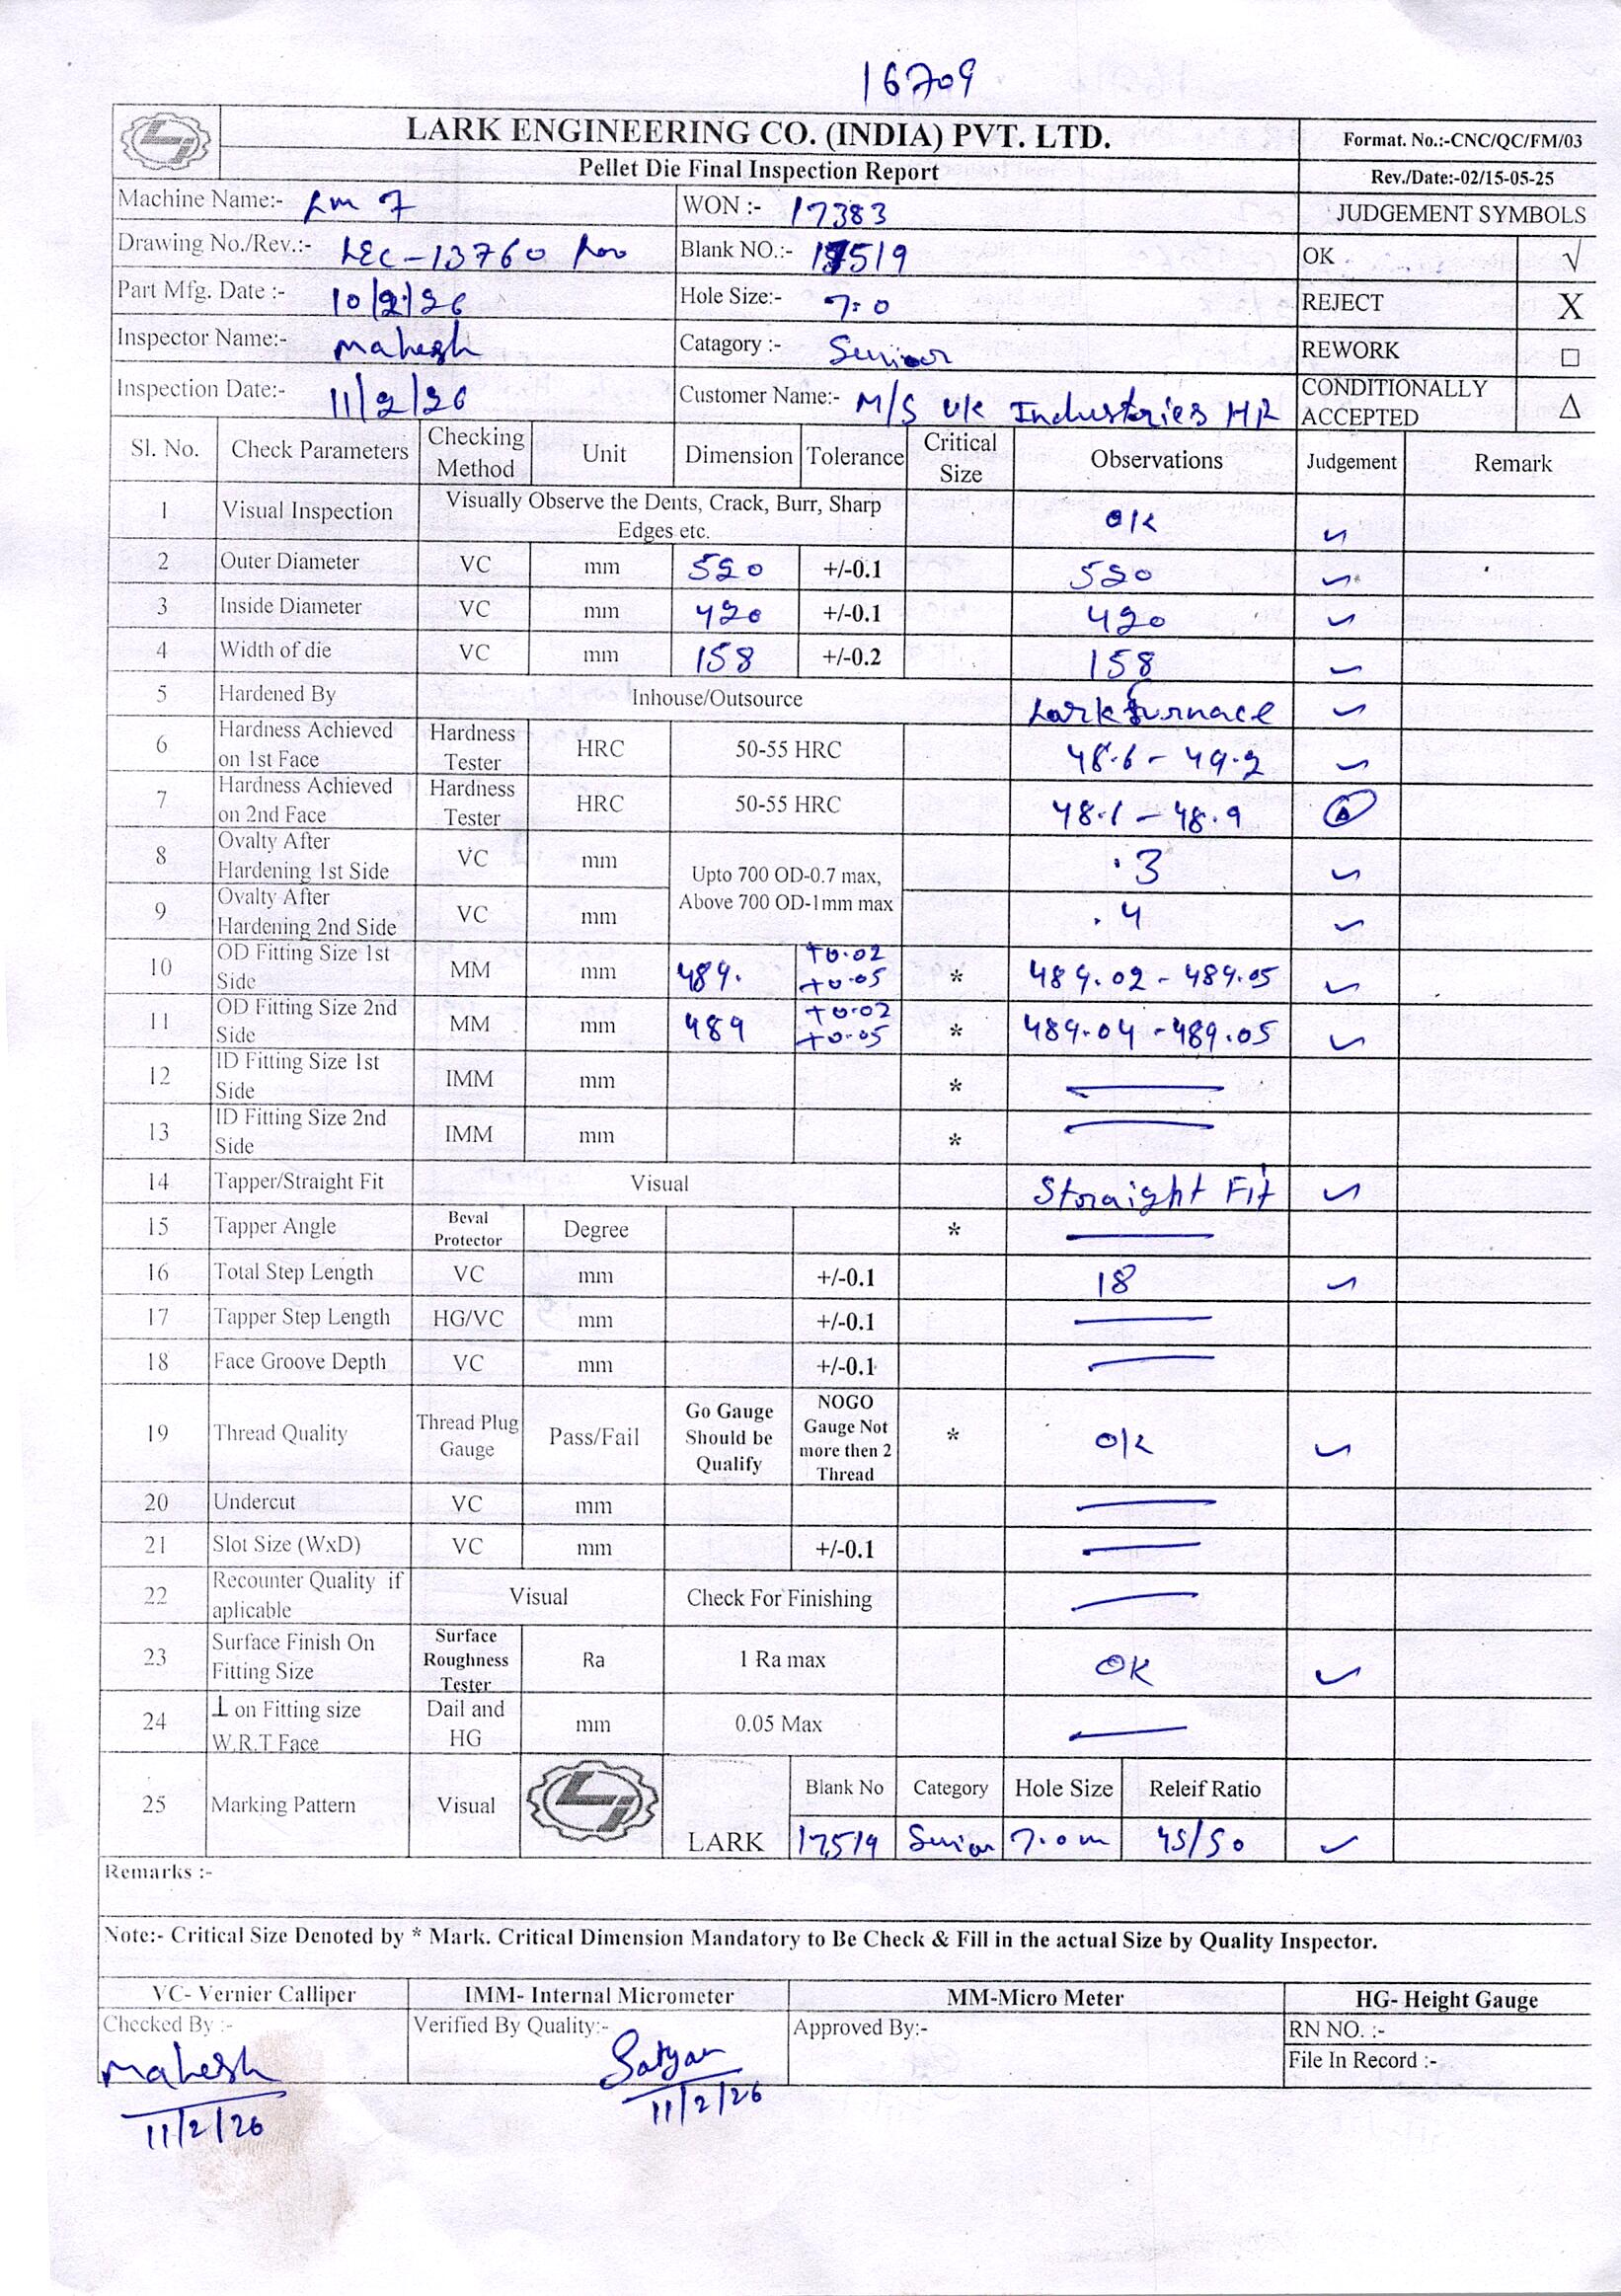 16709
LARK ENGINEERING CO. (INDIA) PVT. LTD.
Format. No.:-CNC/QC/FM/03
Pellet Die Final Inspection Report
Rev./Date:-02/15-05-25
Machine Name:- Lm 7 WON :- 17383 JUDGEMENT SYMBOLS
Drawing No./Rev.:- LEC-13760 Blank NO.:- 17519 OK √
Part Mfg. Date :- 10/2/26 Hole Size:- 7.0 REJECT X
Inspector Name:- Mahesh Catagory :- Senior REWORK □
Inspection Date:- 11/2/26 Customer Name:- M/S UK Industries HR CONDITIONALLY ACCEPTED Δ
Sl. No. Check Parameters Checking Method Unit Dimension Tolerance Critical Size Observations Judgement Remark
1 Visual Inspection Visually Observe the Dents, Crack, Burr, Sharp Edges etc. OK ✓
2 Outer Diameter VC mm 520 +/-0.1 520 ✓
3 Inside Diameter VC mm 420 +/-0.1 420 ✓
4 Width of die VC mm 158 +/-0.2 158 ✓
5 Hardened By Inhouse/Outsource Lark furnace ✓
6 Hardness Achieved on 1st Face Hardness Tester HRC 50-55 HRC 48.6 - 49.2 ✓
7 Hardness Achieved on 2nd Face Hardness Tester HRC 50-55 HRC 48.1 - 48.9
8 Ovalty After Hardening 1st Side VC mm Upto 700 OD-0.7 max, Above 700 OD-1mm max .3 ✓
9 Ovalty After Hardening 2nd Side VC mm .4 ✓
10 OD Fitting Size 1st Side MM mm 489. +0.02 +0.05 * 489.02 - 489.05 ✓
11 OD Fitting Size 2nd Side MM mm 489 +0.02 +0.05 * 489.04 - 489.05 ✓
12 ID Fitting Size 1st Side IMM mm * —
13 ID Fitting Size 2nd Side IMM mm * —
14 Tapper/Straight Fit Visual Straight Fit ✓
15 Tapper Angle Beval Protector Degree * —
16 Total Step Length VC mm +/-0.1 18 ✓
17 Tapper Step Length HG/VC mm +/-0.1 —
18 Face Groove Depth VC mm +/-0.1 —
19 Thread Quality Thread Plug Gauge Pass/Fail Go Gauge Should be Qualify NOGO Gauge Not more then 2 Thread * OK ✓
20 Undercut VC mm —
21 Slot Size (WxD) VC mm +/-0.1 —
22 Recounter Quality if aplicable Visual Check For Finishing —
23 Surface Finish On Fitting Size Surface Roughness Tester Ra 1 Ra max OK ✓
24 ⊥ on Fitting size W.R.T Face Dail and HG mm 0.05 Max —
25 Marking Pattern Visual LARK Blank No Category Hole Size Releif Ratio
17519 Senior 7.0 m 45/50 ✓
Remarks :-
Note:- Critical Size Denoted by * Mark. Critical Dimension Mandatory to Be Check & Fill in the actual Size by Quality Inspector.
VC- Vernier Calliper IMM- Internal Micrometer MM-Micro Meter HG- Height Gauge
Checked By :- Verified By Quality:- Approved By:- RN NO. :-
File In Record :-
Mahesh Satyan
11/2/26 11/2/26